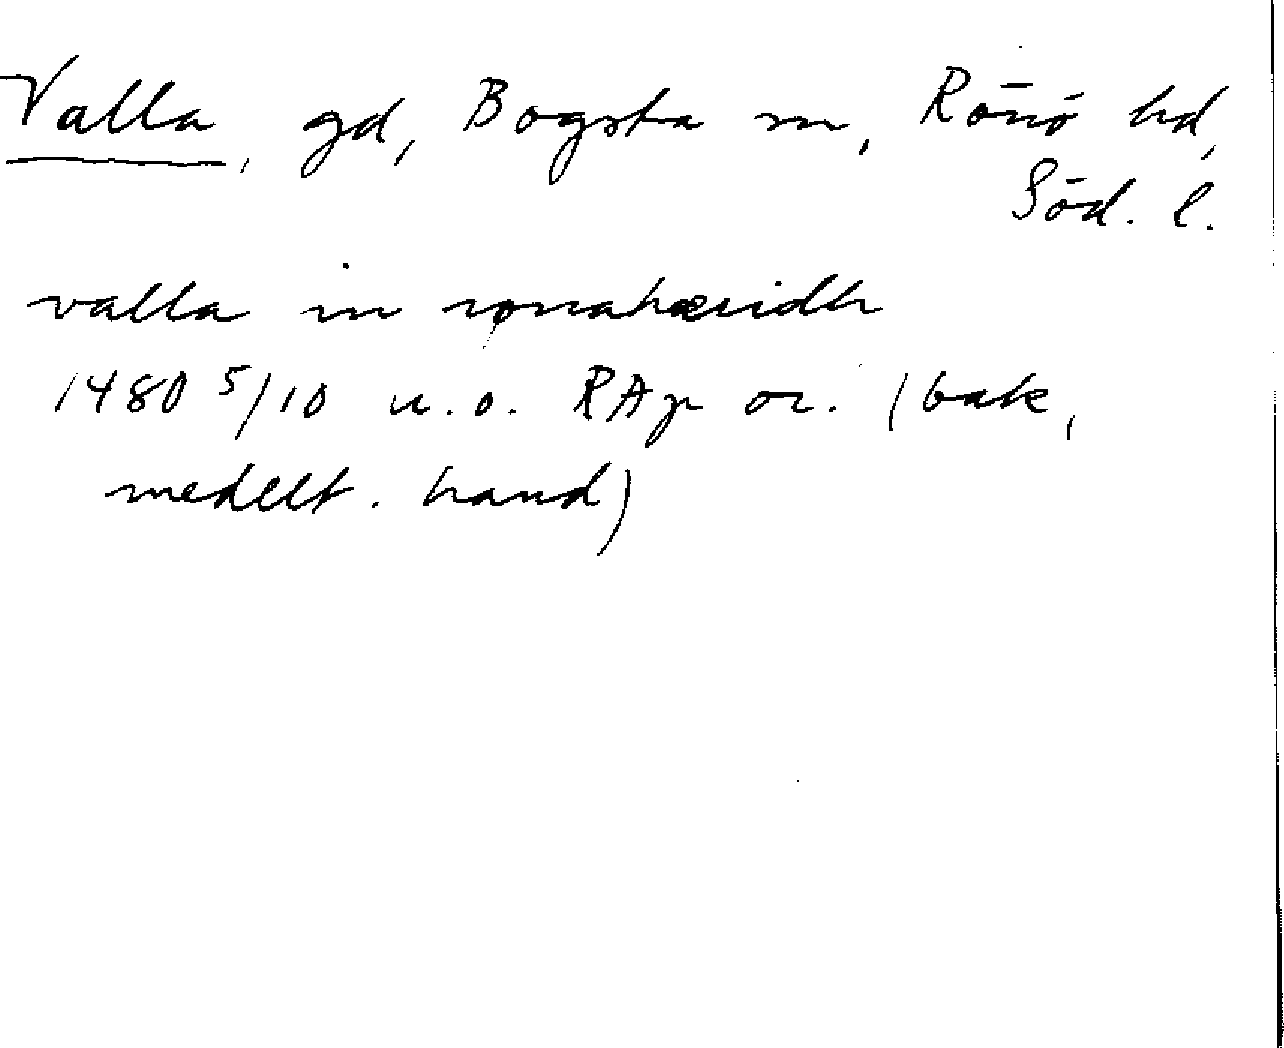 Valla, gd, Bogsta sn, Rönö hd,
Söd. l.
valla in rønahæridh
1480 5/10 u.o. RAp or. (bak,
medelt. hand)